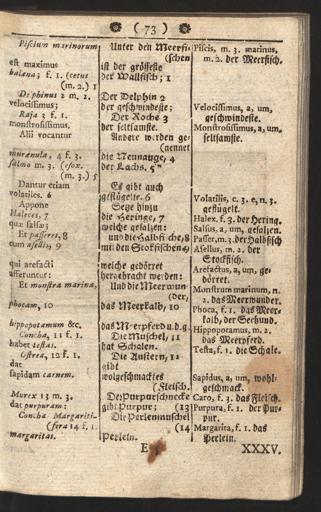 ( 73 )
Piscium marinorum
est maximus
balæna; f. 1. (cetus
(m. 2.) 1
Delphinus 2 m. 2.
velocissimus;
Raja 3 f. 1.
monstrosissimus.
Alii vocantur
murænula, 4 f. 3.
salmo m. 3. (esox.
(m. 3.) 5
Dantur etiam
volatiles. 6
Appone
Haleces, 7
quæ salsæ;
Et passeres, 8
cum asellis, 9
qui arefacti
afferuntur:
Et monstra marina,
phocam, 10
hippopotamum &c.
Concha, 11 f. 1.
habet testas.
Ostrea, 12 f. 1.
dat
sapidam carnem.
Murex 13 m. 3.
dat purpuram:
Concha Margariti-
(fera 14 f. 1.
margaritas.
Unter den Meerfi-
(schen
ist der grösseste
der Wallfisch; 1
Der Delphin 2
der geschwindeste;
Der Roche 3
der seltsamste.
Andere werden ge-
(nennet
die Neunauge, 4
der Lachs. 5
Es gibt auch
geflügelte. 6
Setze hinzu
die Heringe, 7
welche gesalzen:
und die Halbfische, 8
mit den Stockfischen, 9
welche gedörret
hergebracht werden:
Und die Meerwun-
(der,
das Meerkalb, 10
das Meerpferd u. d. g.
Die Muschel, 11
hat Schalen.
Die Austern, 12
gibt
wolgeschmacktes
(Fleisch.
Die Purpurschnecke
gibt Purpur; (13
Die Perlenmuschel
(14
Perlein.
Piscis, m. 3. marinus,
m. 2. der Meerfisch.
Velocissimus, a, um,
geschwindeste.
Monstrosissimus, a, um,
seltsamste.
Volatilis, c. 3. e, n. 3.
geflügelt.
Halex, f. 3. der Hering.
Salsus, a, um, gesalzen.
Passer, m. 3. der Halbfisch
Asellus, m. 2. der
Stockfisch.
Arefactus, a, um, ge-
dörret.
Monstrum marinum, n.
2. das Meerwunder.
Phoca, f. 1. das Meer-
kalb, der Seehund.
Hippopotamus, m. 2.
das Meerpferd.
Testa, f. 1. die Schale.
Sapidus, a, um, wohl-
geschmack.
Caro, f. 3. das Fleisch.
Purpura, f. 1. der Pur-
pur.
Margarita, f. 1. das
Perlein.
XXXV.